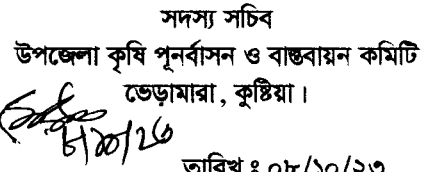 সদস্য সচিব
উপজেলা কৃষি পূনর্বাসন ও বাস্তবায়ন কমিটি
ভেড়ামারা, কুষ্টিয়া।
৮/১০/২৩
তারিখ ঃ ০৮/১০/২৩